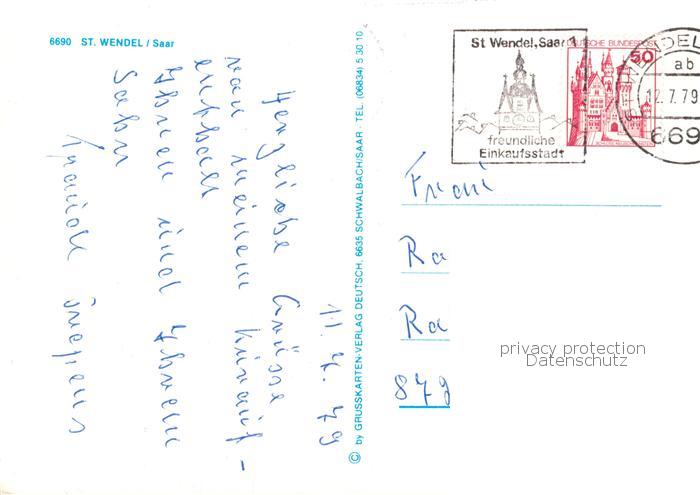 6690 ST. WENDEL / Saar
11. 7. 79
Herzliche Grüsse
von meinem Kurauf-
enthalt
Ihnen und Ihrem
Sohn
© by GRUSSKARTEN-VERLAG DEUTSCH, 6635 SCHWALBACH/SAAR · TEL. (06834) 5 30 10
St Wendel, Saar 1
freundliche
Einkaufsstadt
DEUTSCHE BUNDESPOST
50
ST WENDEL
ab
12.7.79
669
Ra
Ra
879
privacy protection
Datenschutz